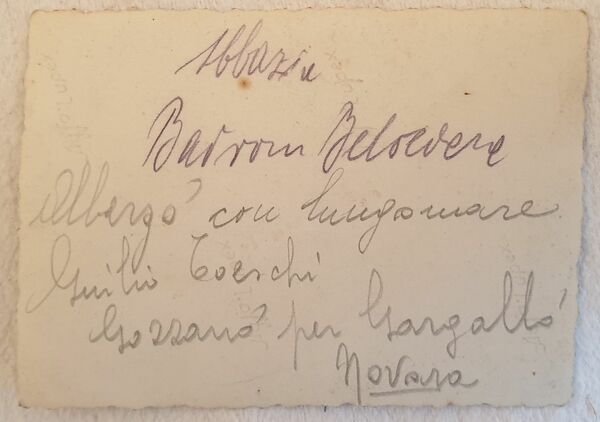 Abbazia
Badrom Belvedere
Albergó con lungomare
Giulio Toeschi
Gozzanó per Gargalló
Novara